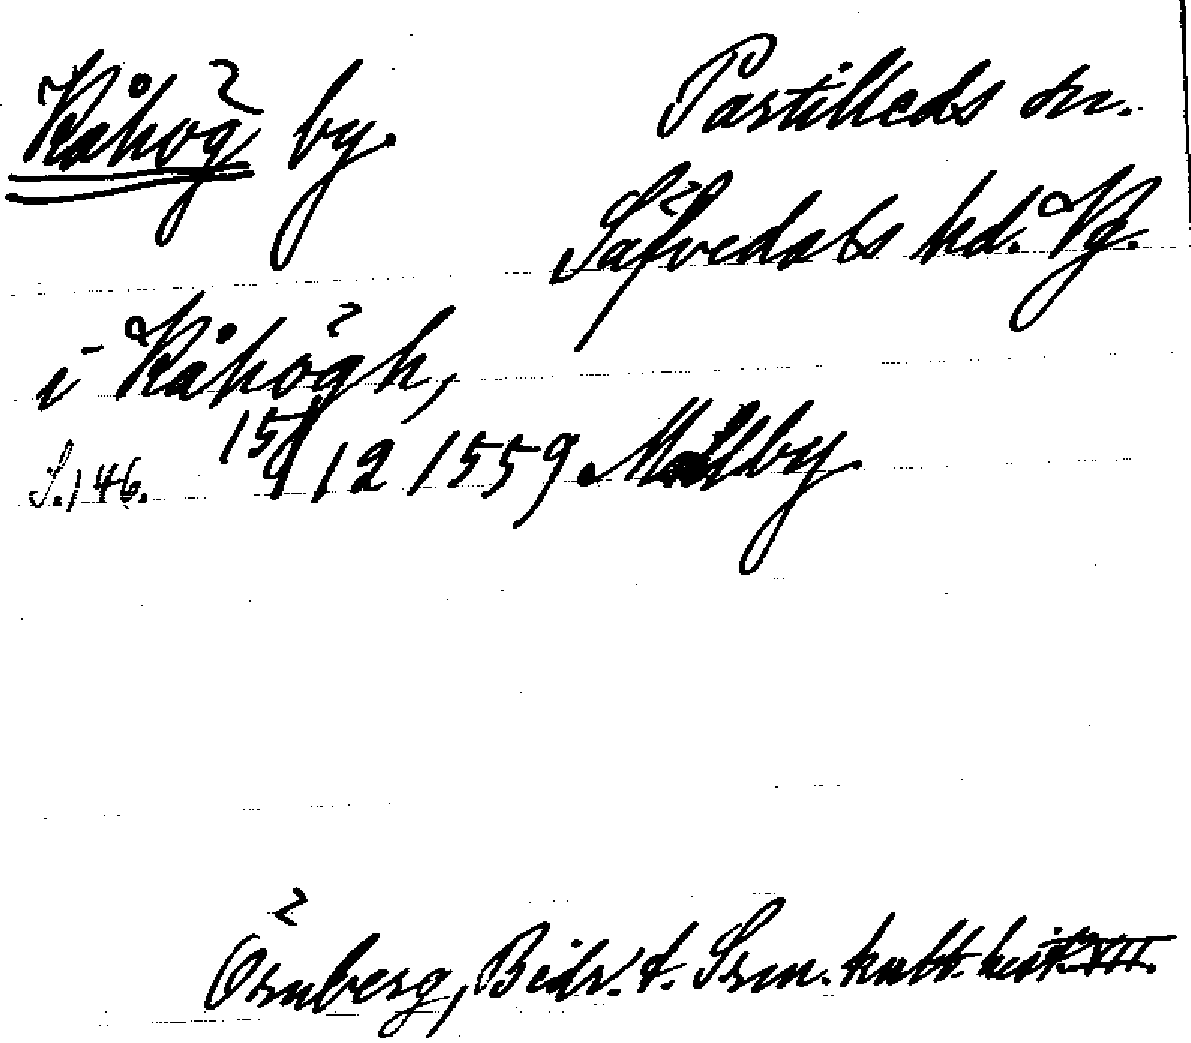 Kåhög by. Partilleds sn.
Säfvedals hd. Vg.
i Kåhögh,
S. 146. 15/12 1559 Mälby
Örnberg, Bidr. t. Srm. kult. hist. XII.